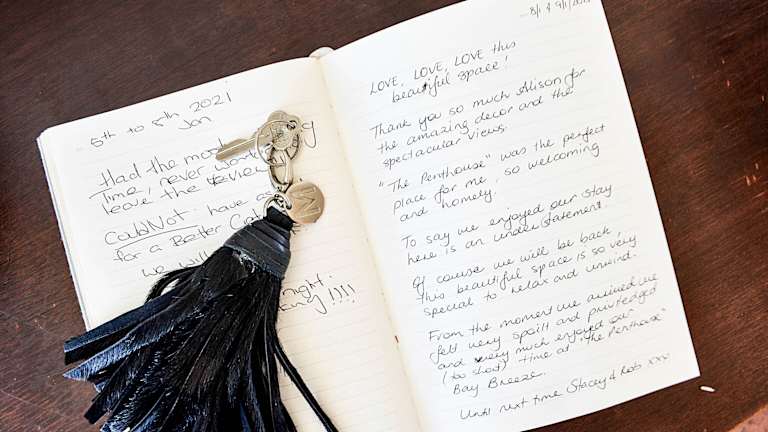 5th to 8th 2021
Jan
Had the most
Time, never
leave the
CouldNot have as
for a Better
we will
night
!!!!
M
8/1 & 9/1/2021
LOVE, LOVE, LOVE this
beautiful space!
Thank you so much Alison for
the amazing decor and the
spectacular views.
"The Penthouse" was the perfect
place for me, so welcoming
and homely.
To say we enjoyed our stay
here is an understatement.
Of course we will be back,
this beautiful space is so very
special to relax and unwind.
From the moment we arrived we
felt very spoilt and privileged
and very much enjoyed our
(too short) time at "The Penthouse"
Bay Breeze.
Until next time Stacey & Rob xxx